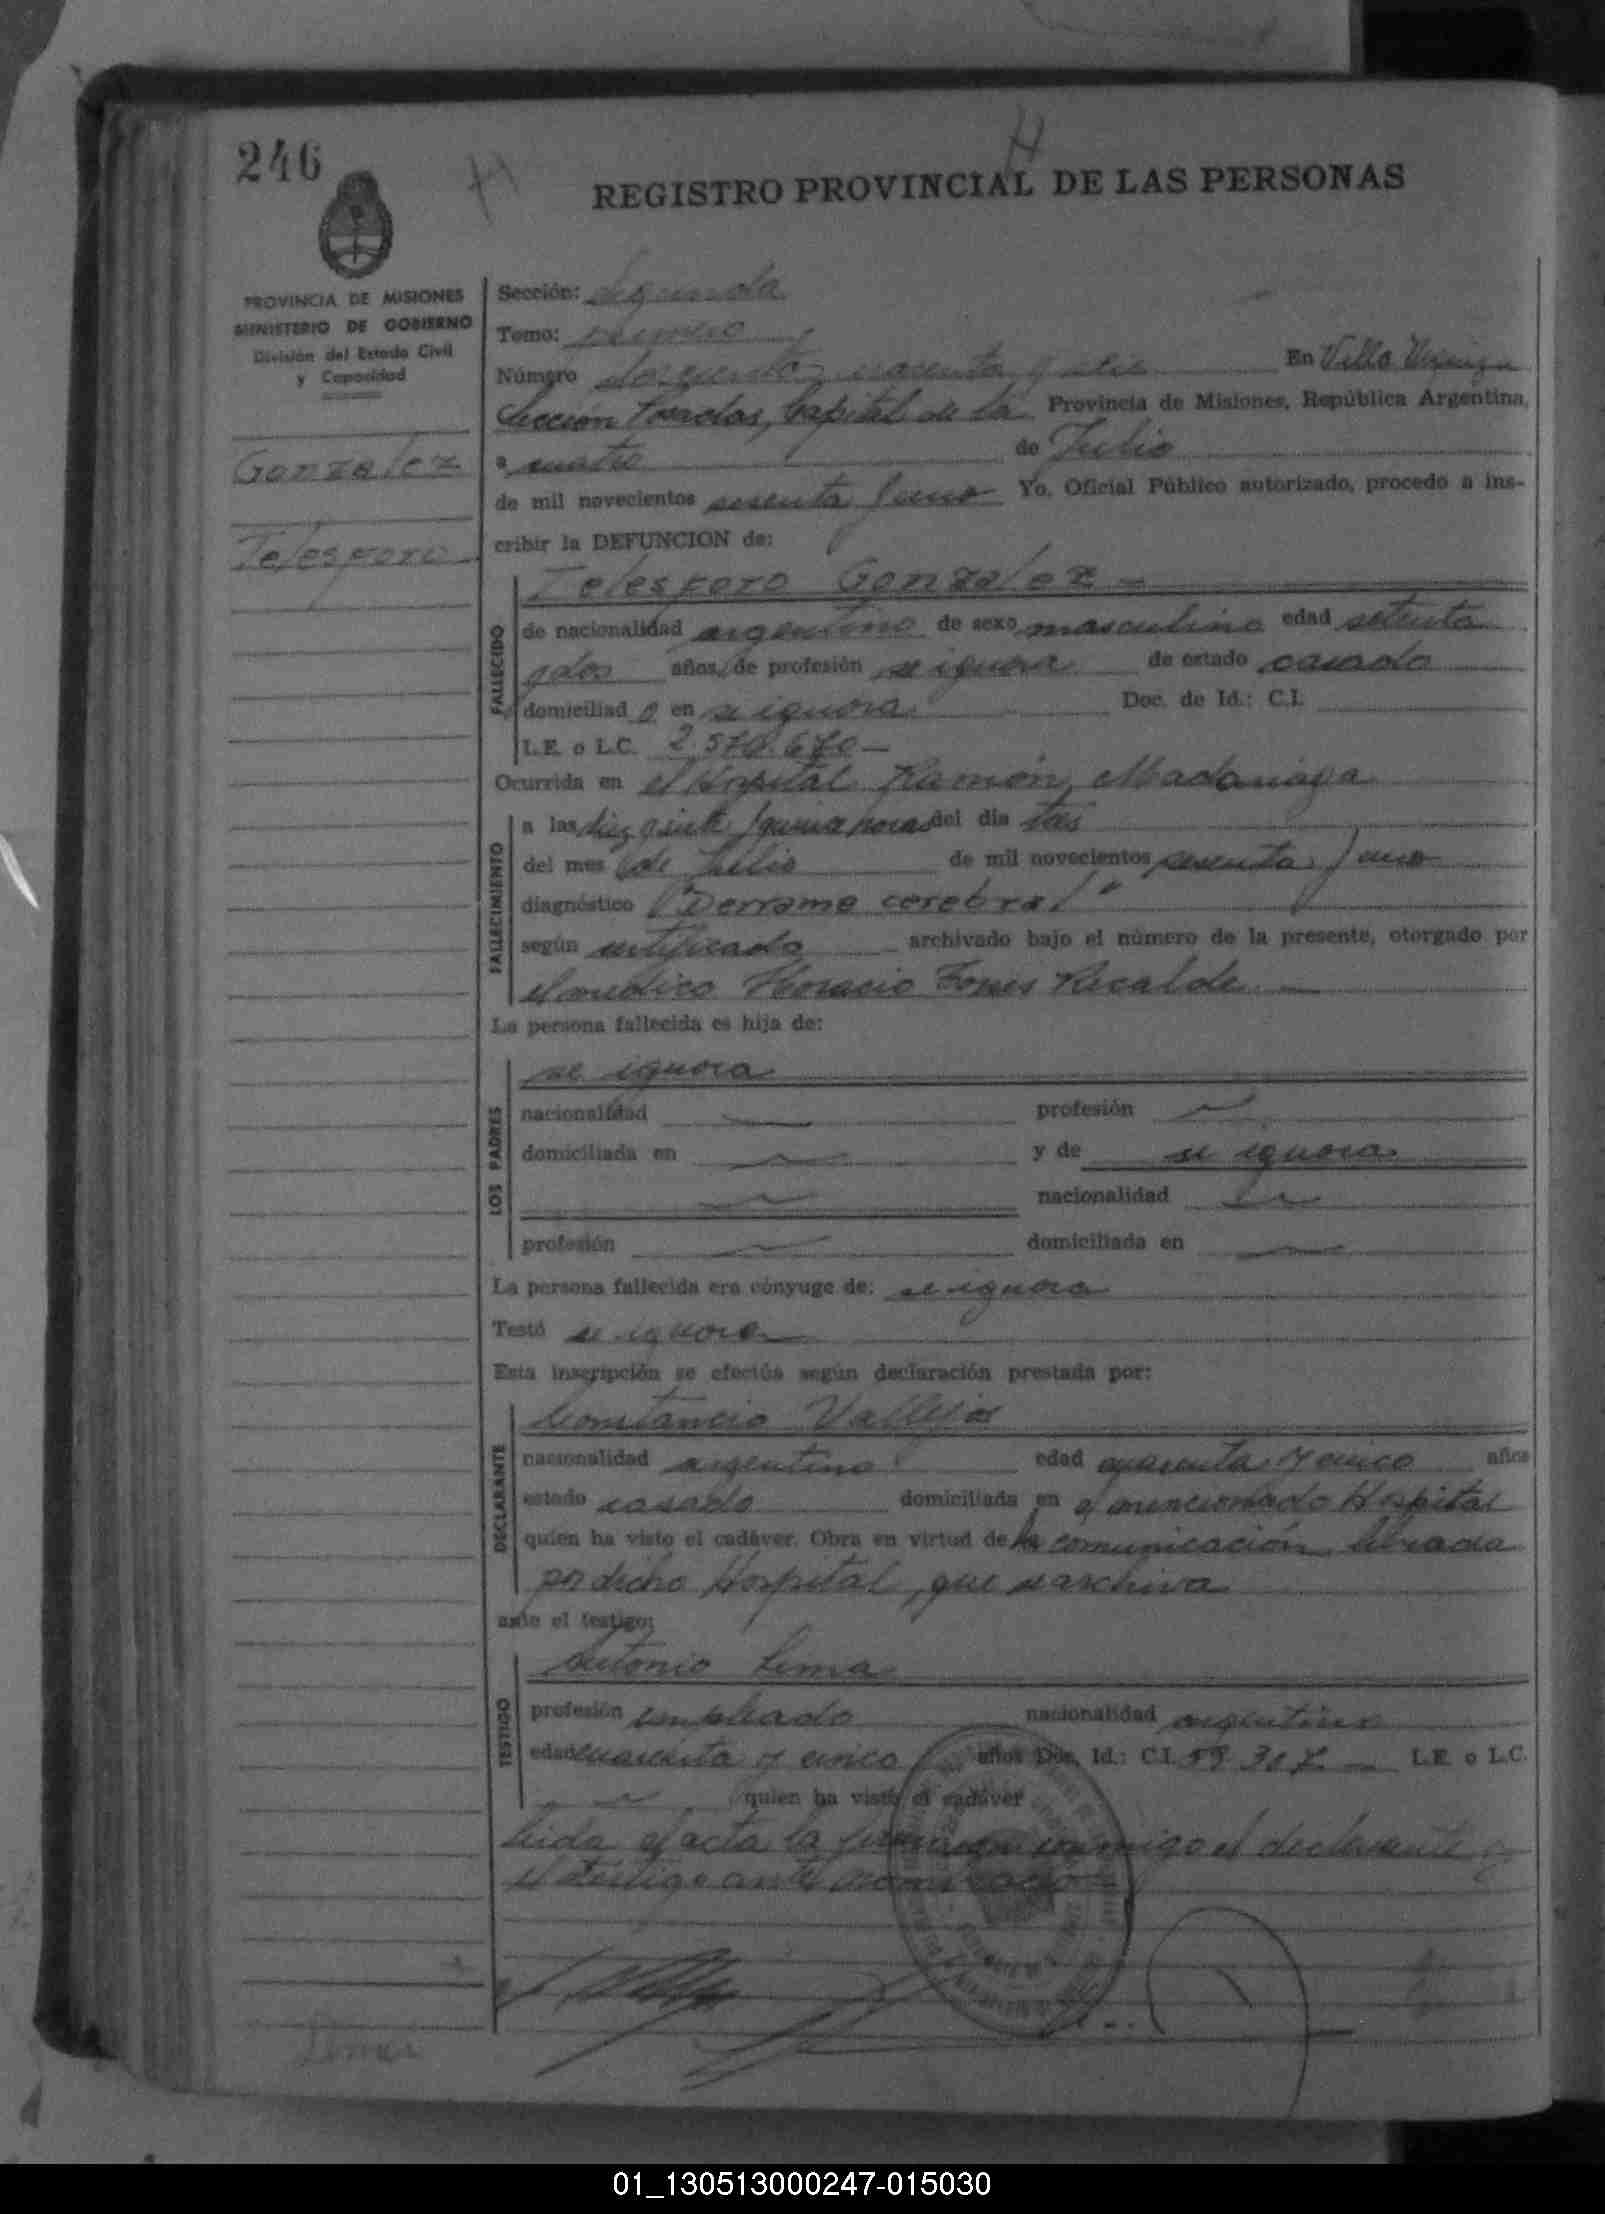 246
REGISTRO PROVINCIAL DE LAS PERSONAS
PROVINCIA DE MISIONES
MINISTERIO DE GOBIERNO
División del Estado Civil
y Capacidad
Gonzalez
Telesforo
Sección: Segunda
Tomo: primero
Número doscientos cuarenta y seis En Villa Urquiza
Sección Posadas, Capital de la Provincia de Misiones, República Argentina,
a cuatro de Julio
de mil novecientos sesenta y uno Yo, Oficial Público autorizado, procedo a ins-
cribir la DEFUNCION de:
FALLECIDO
Telesforo Gonzalez
de nacionalidad argentino de sexo masculino edad setenta
y dos años, de profesión se ignora de estado casado
domiciliado en se ignora Doc. de Id.: C.I.
L.E. o L.C. 2.570.670
Ocurrida en el Hospital Ramón Madariaga
FALLECIMIENTO
a las diez y siete y quince horas del día tres
del mes de Julio de mil novecientos sesenta y uno
diagnóstico "Derrame cerebral"
según certificado archivado bajo el número de la presente, otorgado por
el médico Horacio Recalde
La persona fallecida es hija de:
LOS PADRES
se ignora
nacionalidad profesión
domiciliada en y de se ignora
nacionalidad
profesión domiciliada en
La persona fallecida era cónyuge de: se ignora
Testó se ignora
Esta inscripción se efectúa según declaración prestada por:
DECLARANTE
Constancio Vallejos
nacionalidad argentino edad cuarenta y cinco años
estado casado domiciliada en el mencionado Hospital
quien ha visto el cadáver. Obra en virtud de la comunicación librada
por dicho Hospital, que se archiva
ante el testigo:
TESTIGO
Antonio Lima
profesión empleado nacionalidad argentino
edad cuarenta y cinco años Doc. Id.: C.I. 59.307 L.E. o L.C.
quien ha visto el cadáver
Leida el acta la firman conmigo el declarante y
el testigo
01_130513000247-015030